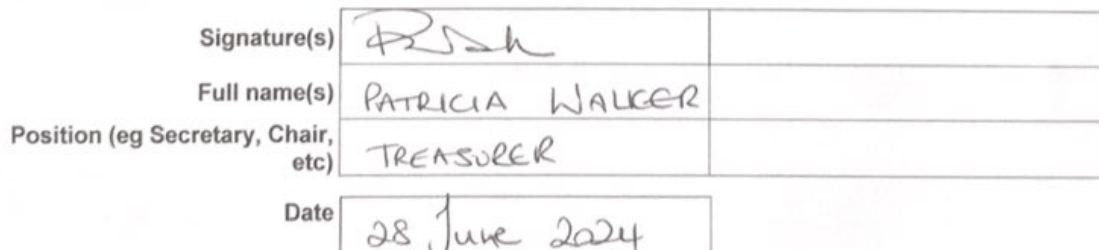 Signature(s)
Full name(s) PATRICIA WALKER
Position (eg Secretary, Chair,
etc) TREASURER
Date 28 June 2024